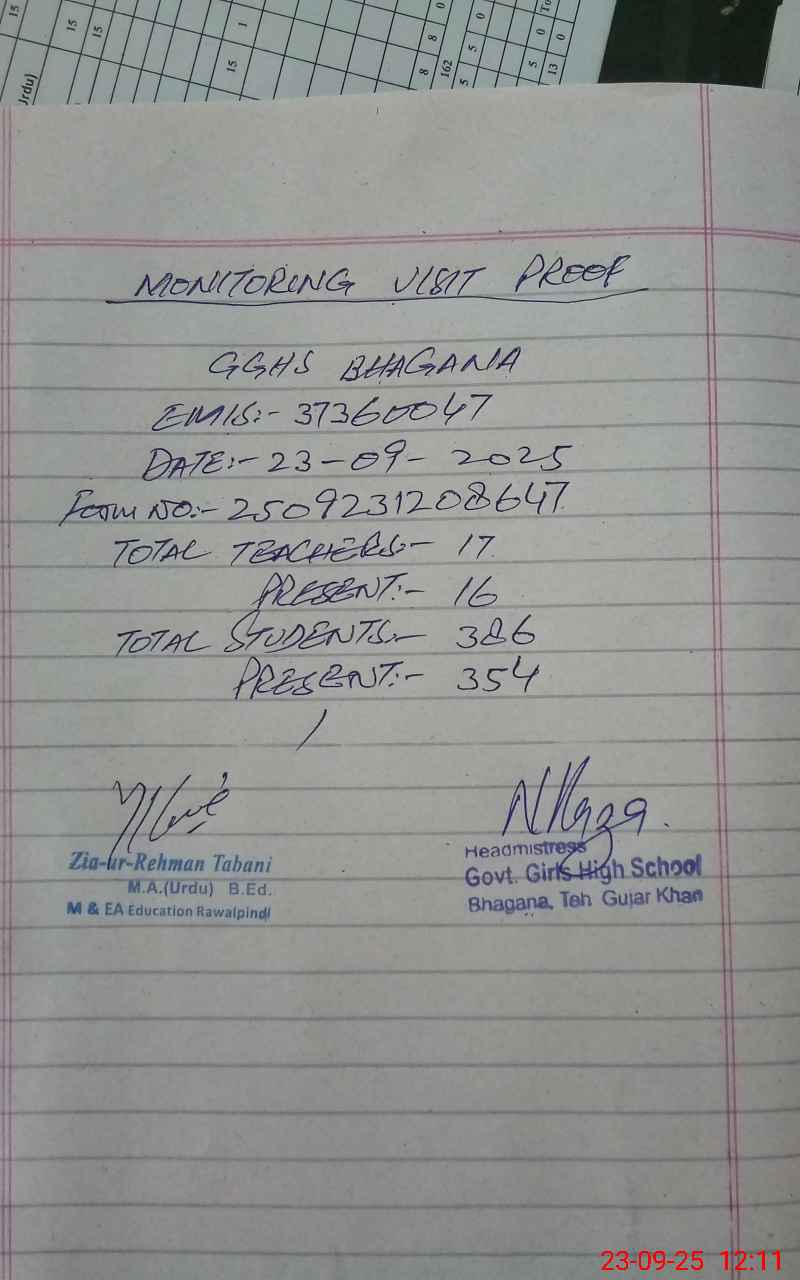 15
15
15
15
1
8
8
0
162
5
5
0
5
0
13
0
To
Urdu)
MONITORING VISIT PROOF
GGHS BHAGANA
EMIS:- 37360047
DATE:- 23-09-2025
Form NO:- 2509231208647
TOTAL TEACHERS:- 17
PRESENT:- 16
TOTAL STUDENTS:- 386
PRESENT:- 354
Zia-ur-Rehman Tabani
M.A.(Urdu) B.Ed.
M & EA Education Rawalpindi
NRaza.
Headmistress
Govt. Girls High School
Bhagana, Teh Gujar Khan
23-09-25 12:11